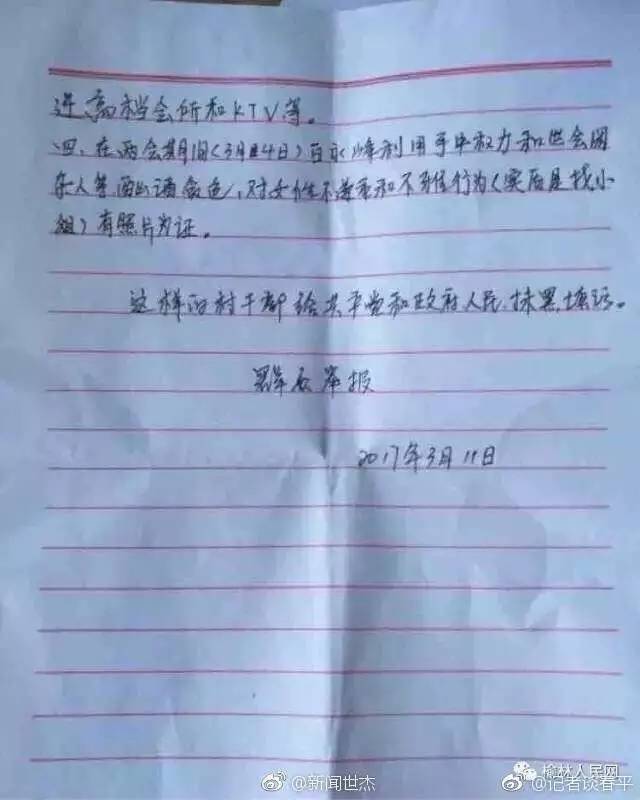 进高档会所和KTV等。
四、在两会期间(3月4日)白永峰利用手中权力和社会闲
杂人等酒色,对女性不尊重和不雅行为(实后是找小
姐)有照片为证。
这样的村干部给共产党和政府人民,抹黑,填污。
群众举报
2017年3月11日
榆林人民网
@新闻世杰
@记者谈春平